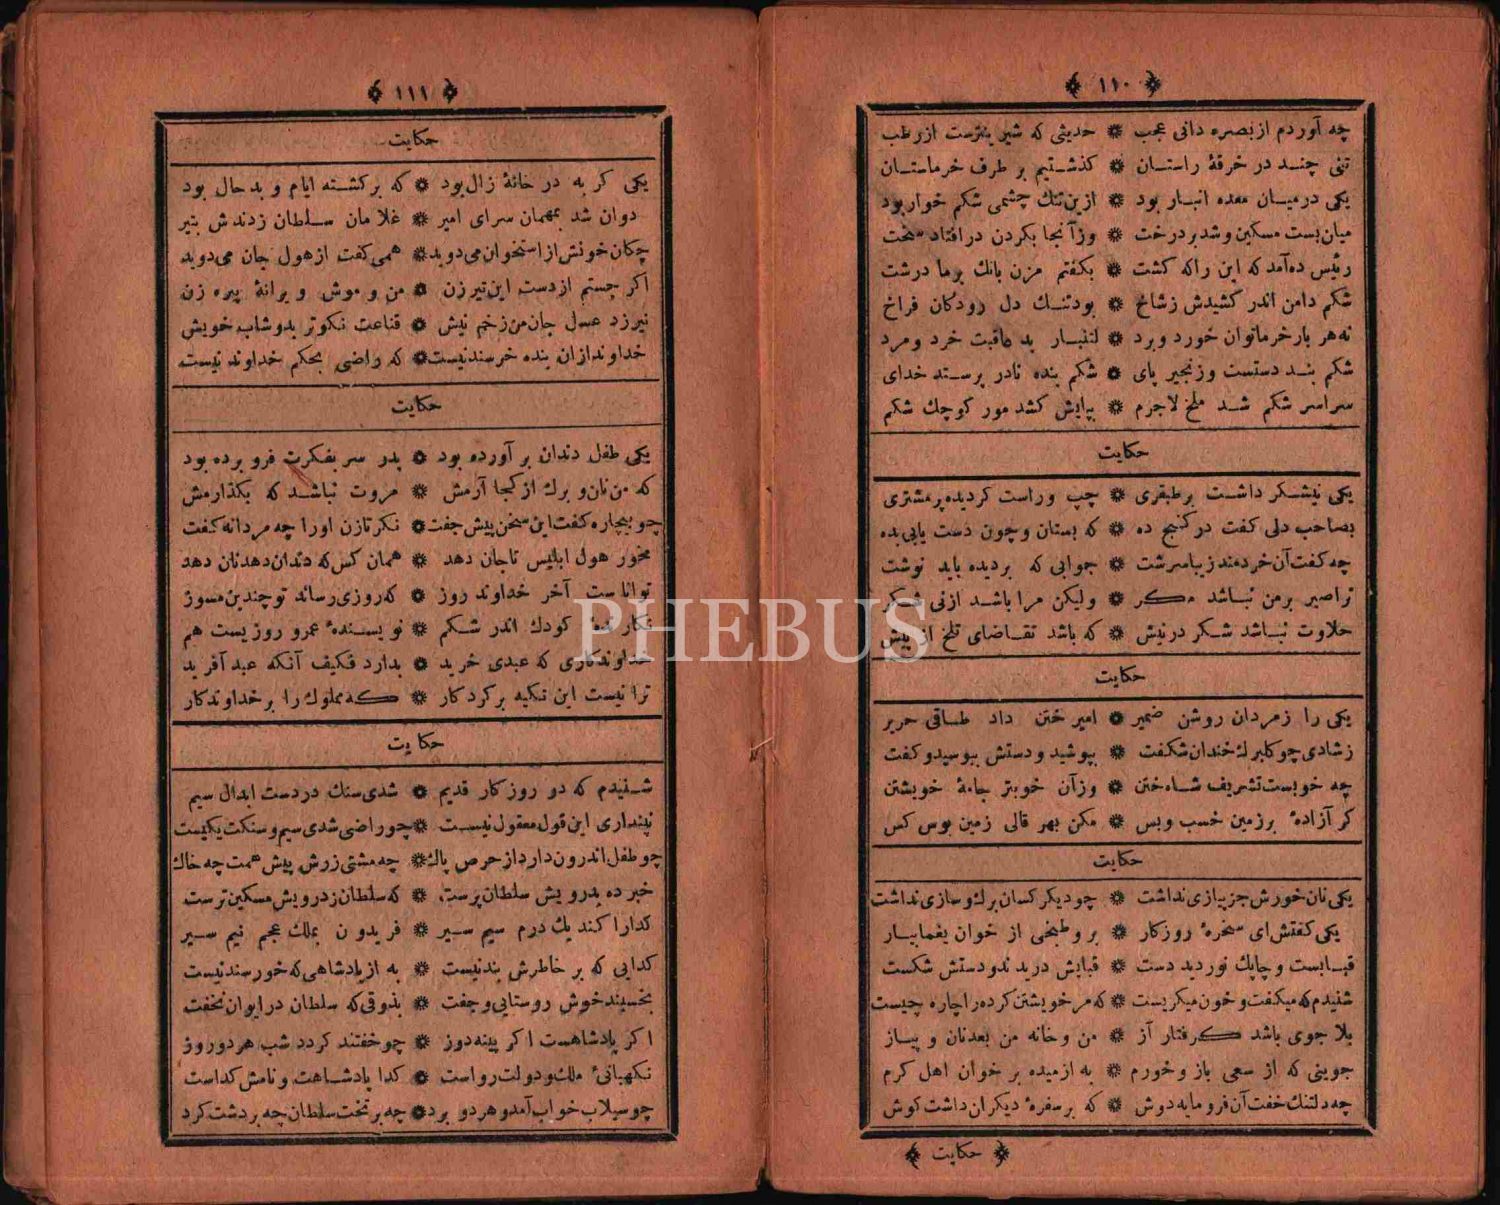 ١١٠
چه آوردم از بصره دانی عجب ❋ حدیثی که شیرینترست از رطب
تنی چند در خرقهٔ راستان ❋ کذشتیم بر طرف خرماستان
یکی درمیان معده انبار بود ❋ ازین تنك چشمی شکم خوار بود
میان بست مسکین و شد بر درخت ❋ وزآنجا بکردن در افتاد سخت
رئیس ده آمد که این را که کشت ❋ بکفتم مزن بانك برما درشت
شکم دامن اندر کشیدش زشاخ ❋ بود تنك دل رودکان فراخ
نه هر بار خرما توان خورد و برد ❋ لتنبار بد عاقبت خرد و مرد
شکم بند دستست وزنجیر پای ❋ شکم بنده نادر پرستد خدای
سراسر شکم شد ملخ لاجرم ❋ بپایش کشد مور کوچك شکم
حکایت
یکی نیشکر داشت بر طبقری ❋ چپ وراست کردیده پر مشتری
بصاحب دلی کفت در کنج ده ❋ که بستان وچون دست یابی بده
چه کفت آن خردمند زیبا سرشت ❋ جوابی که بردیده باید نوشت
ترا صبر برمن نباشد مکر ❋ ولیکن مرا باشد ازنی شکر
حلاوت نباشد شکر درنیش ❋ که باشد تقاضای تلخ از پیش
حکایت
یکی را زمردان روشن ضمیر ❋ امیر ختن داد طاقی حریر
زشادی چو کلبرك خندان شکفت ❋ بپوشید ودستش ببوسید وکفت
چه خوبست تشریف شاه ختن ❋ وزآن خوبتر جامهٔ خویشتن
کر آزادهٔ برزمین خسب وبس ❋ مکن بهر قالی زمین بوس کس
حکایت
یکی نان خورش جز پیازی نداشت ❋ چو دیکر کسان برك وسازی نداشت
یکی کفتش ای سخرهٔ روزکار ❋ برو طبخی از خوان یغما بیار
قبا بست وچاپك نوردید دست ❋ قبایش دریدند ودستش شکست
شنیدم که میکفت وخون میکریست ❋ که مر خویشتن کرده را چاره چیست
بلا جوی باشد کرفتار آز ❋ من وخانه من بعد نان و پیاز
جوینی که از سعی بازو خورم ❋ به از میده بر خوان اهل کرم
چه دلتنك خفت آن فرومایه دوش ❋ که بر سفرهٔ دیکران داشت کوش
حکایت
١١١
حکایت
یکی کربه در خانهٔ زال بود ❋ که برکشته ایام و بدحال بود
دوان شد بمهمان سرای امیر ❋ غلامان سلطان زدندش بتیر
چکان خونش از استخوان می دوید ❋ همی کفت از هول جان می دوید
اکر جستم از دست این تیرزن ❋ من و موش و برانهٔ پیره زن
نیرزد عسل جان من زخم نیش ❋ قناعت نکوتر بدوشاب خویش
خداوند ازان بنده خرسند نیست ❋ که راضی بحکم خداوند نیست
حکایت
یکی طفل دندان بر آورده بود ❋ پدر سر بفکرت فرو برده بود
که من نان و برك از کجا آرمش ❋ مروت نباشد که بکذارمش
چو بیچاره کفت این سخن پیش جفت ❋ نکر تازن اورا چه مردانه کفت
مخور هول ابلیس تا جان دهد ❋ همان کس که دندان دهد نان دهد
تواناست آخر خداوند روز ❋ که روزی رساند تو چندین مسوز
نکارندهٔ کودك اندر شکم ❋ نویسندهٔ عمرو روزیست هم
خداوندکاری که عبدی خرید ❋ بدارد فکیف آنکه عبد آفرید
ترا نیست این تکیه بر کردکار ❋ که مملوك را بر خداوندکار
حکایت
شنیدم که دو روزکار قدیم ❋ شدی سنك در دست ابدال سیم
نپنداری این قول معقول نیست ❋ چو راضی شدی سیم و سنکت یکیست
چو طفل اندرون دارد از حرص پاك ❋ چه مشتی زرش پیش همت چه خاك
خبر ده بدرویش سلطان پرست ❋ که سلطان زدرویش مسکین ترست
کدارا کند یك درم سیم سیر ❋ فریدون بملك عجم نیم سیر
کدایی که بر خاطرش بند نیست ❋ به از پادشاهی که خورسند نیست
بخسبند خوش روستایی وجفت ❋ بذوقی که سلطان در ایوان نخفت
اکر پادشاهست اکر پینه دوز ❋ چو خفتند کردد شب هر دو روز
نکهبانیٔ ملك و دولت رواست ❋ کدا پادشاهت و نامش کداست
چو سیلاب خواب آمد وهر دو برد ❋ چه بر تخت سلطان چه بر دشت کرد
PHEBUS